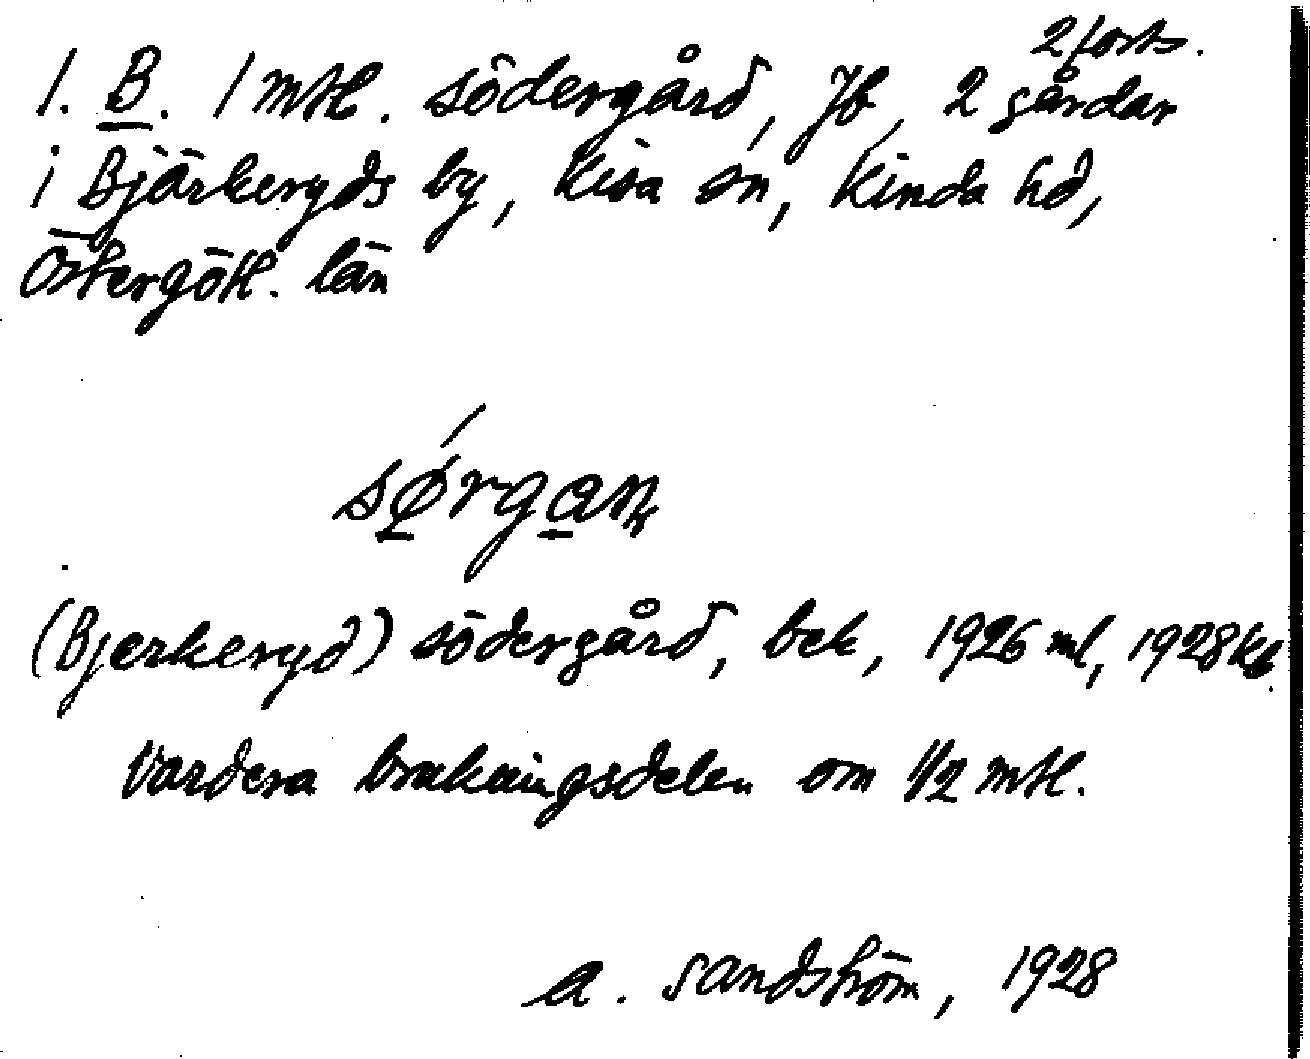 2 forts.
1. B. 1 mtl. södergård, Jb, 2 gårdar
i Bjärkeryds by, Kisa sn, Kinda hd,
Östergötl. län
sørgan
(Bjerkeryd) södergård, bek, 1926 ml, 1928 kb
Vardera brukningsdelen om 1/2 mtl.
A. Sandström, 1928